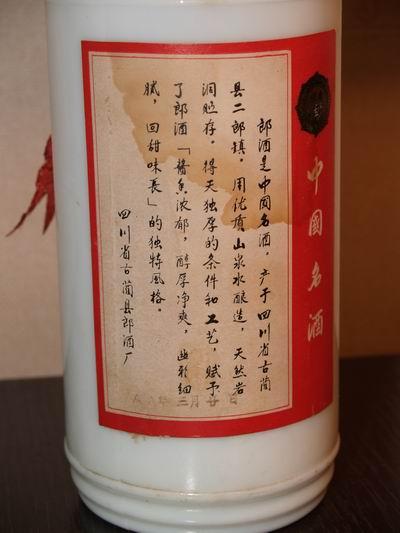 中國名酒
郎酒是中國名酒，产于四川省古蔺
县二郎镇，用优质山泉水酿造，天然岩
洞贮存。得天独厚的条件和工艺，赋予
了郎酒「醬香浓郁，醇厚净爽，幽雅细
腻，回甜味長」的独特風格。
四川省古蔺县郎酒厂
年三月廿日